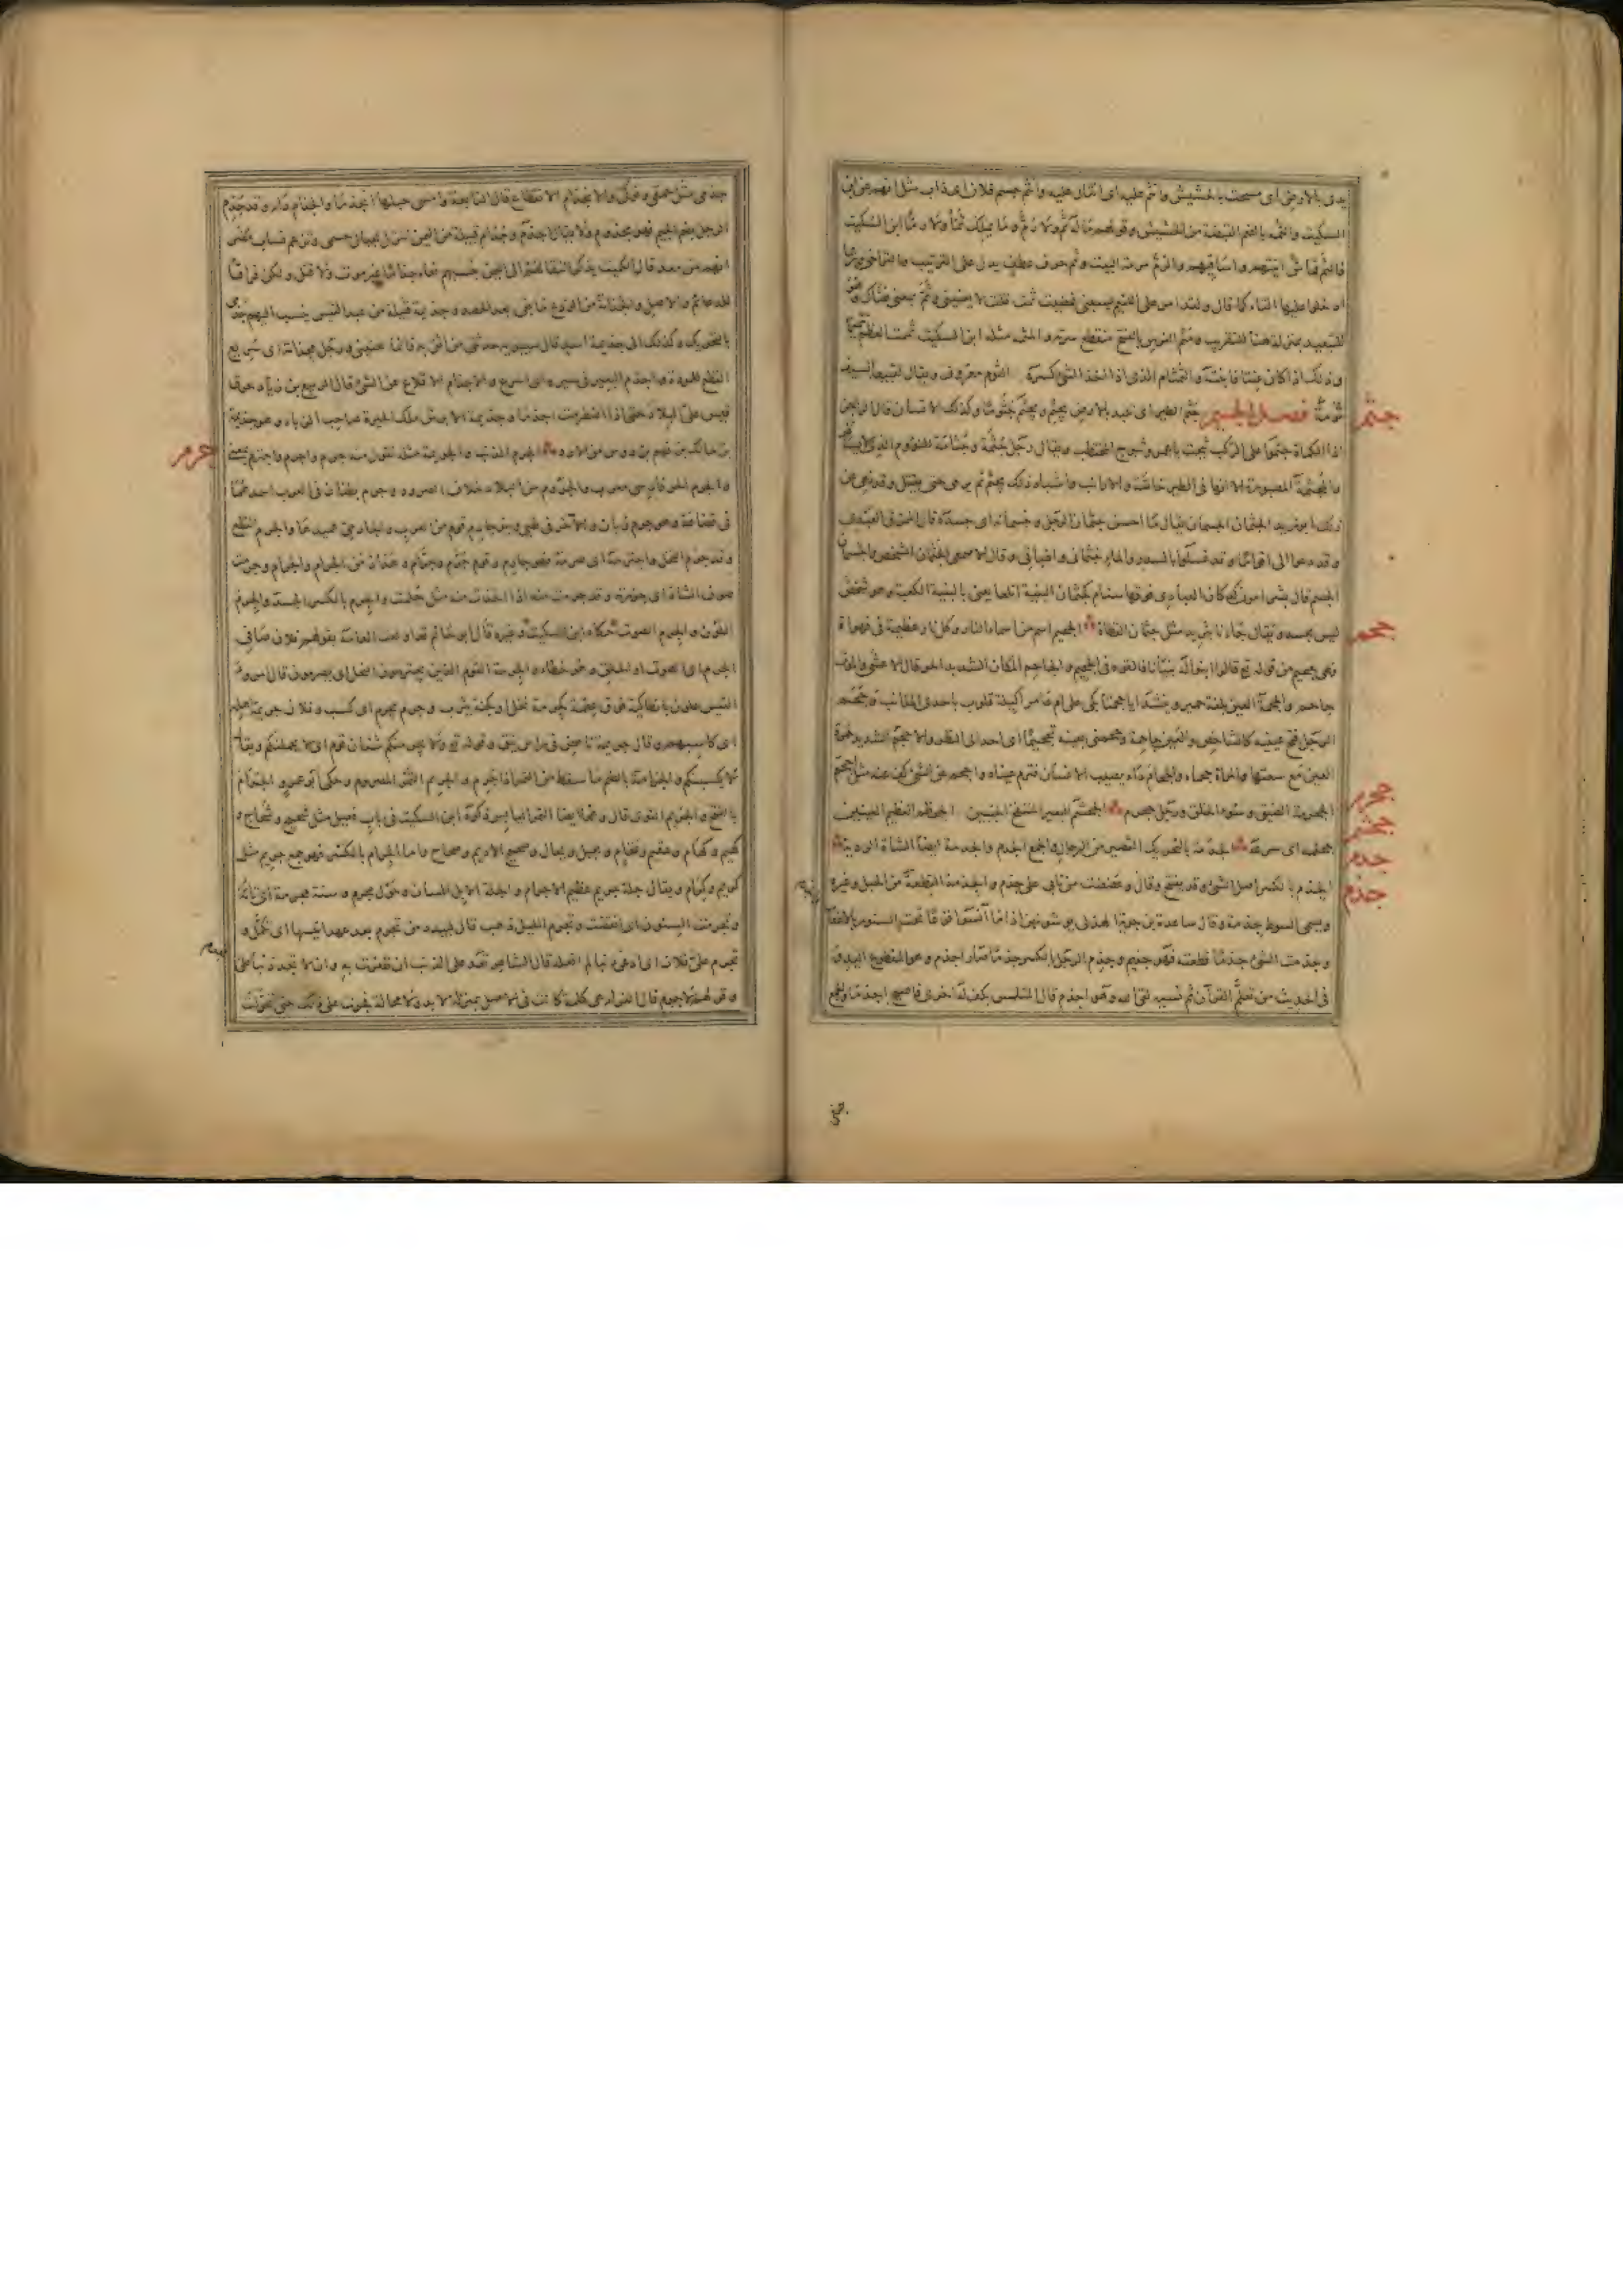 يدى بالارض اى مسحت بالحشيش وانثم عليه اى انثال عليه وانثم جسم فلان اى ذاب مثل انهم عن ابن
السكيت والثمة بالضم القبضة من الحشيش وقولهم ماله ثم ولا رم وما يملك ثما ولا رما ابن السكيت
فالثم قماش اساقيهم وآنيتهم والرم مرمة البيت وثم حرف عطف يدل على الترتيب والتراخى وربما
ادخلوا عليها التاء كما قال ولقد امر على اللئيم يسبنى فمضيت ثمت قلت لا يعنينى وثم بمعنى هناك وهو
للتبعيد بمنزلة هنا للتقريب ومثم الفرس بالفتح منقطع سرته والمثمة مثله ابن السكيت ثممت العظم تثميما
وذلك اذا كان عنتا فابنته والثمثام الذى اذا اخذ الشئ كسره الثوم معروف ويقال لقبيعة السيف
ثومة فصل الجيم جثم الطير اى تلبد بالارض يجثم ويجثم جثوما وكذلك الانسان قال الراجز
جثم
اذا الكماة جثموا على الركب ثبجت يا عمرو ثبوج المحتطب ويقال رجل جثمة وجثامة للنؤوم الذى لا يسافر
والمجثمة المصبورة الا انها فى الطير خاصة والارانب واشباه ذلك يجثم ثم يرمى حتى يقتل وقد نهى عن
ذلك ابو زيد الجثمان الجسمان يقال ما احسن جثمان الرجل وجسمانه اى جسده قال الممزق العبدى
وقد دعوا الى اقوامنا وقد غسلوا بالسدر والماء جثمانى واطباقى وقال الاصمعى الجثمان الشخص والجسمان
الجسم قال بشر امون كدكان العبادى فوقها سنام كجثمان البنية اتلعا يعنى بالبنية الكعبة وهو شخص
ليس بجسد ويقال جاءنا بثريد مثل جثمان القطاة الجحيم اسم من اسماء النار وكل نار عظيمة فى مهواة
جحم
فهى جحيم من قوله تع قالوا ابنوا له بنيانا فالقوه فى الجحيم والجاحم المكان الشديد الحر قال الاعشى والموت
جاحم والجحمة العين بلغة حمير وينشد ايا جحمتا بكى على ام عامر اكيلة قلوب باحدى المذانب وجحم
الرجل فتح عينيه كالشاخص والعين جاحمة وجحمنى بعينه تجحيما اى احد الى النظر والاجحم الشديد حمرة
العين مع سعتها والمراة جحماء والجحام داء يصيب الانسان فترم عيناه واجحم عن الشئ كف عنه مثل احجم
الجحرمة الضيق وسوء الخلق ورجل جحرم الجحشم البعير المنتفخ الجنبين الجحظم العظيم العينين
جحرم
جحشم
جحلمه اى صرعه الجدمة بالتحريك القصير من الرجال والجمع الجدم والجدمة ايضا الشاة الردية
جدم
الجذم بالكسر اصل الشئ وقد يفتح وقال وعضضت من نابى على جذم والجذمة القطعة من الحبل وغيره
جذم
ويسمى السوط جذمة وقال ساعدة بن جوية الهذلى يوشونهن اذا ما آنسوا فزعا تحت السنور بالاعقاب
وجذمت الشئ جذما قطعته فهو جذيم وجذم الرجل بالكسر جذما صار اجذم وهو المقطوع اليد وفى
فى الحديث من تعلم القرآن ثم نسيه لقى الله وهو اجذم قال المتلمس بكف له اخرى فاصبح اجذما والجمع
جذمى مثل احمق وحمقى والانجذام الانقطاع قال النابغة وامسى حبلها انجذما والجذام داء وقد جذم
الرجل بضم الجيم فهو مجذوم ولا يقال اجذم وجذام قبيلة من اليمن تنزل بجبال حسمى وتزعم نساب مضر
انهم من معد قال الكميت يذكر انتقالهم الى اليمن بنسبهم نعاء جذاما غير موت ولا قتل ولكن فراقا
للدعائم والاصل والجذامة من الزرع ما بقى بعد الحصد وجذيمة قبيلة من عبد القيس ينسب اليهم جذمى
بالتحريك وكذلك الى جذيمة اسد قال سيبويه حدثنى من اثق به
القطع للمودة واجذم البعير فى سيره اى اسرع والاجذام الاقلاع عن الشئ قال الربيع بن زياد حرق
قيس على البلاد حتى اذا اضطرمت اجذما وجذيمة الابرش ملك الحيرة صاحب الزباء وهو جذيمة
بن مالك بن فهم بن دوس من الازد الجرم الذنب والجريمة مثله تقول منه جرم واجرم واجترم بمعنى
جرم
والجرم الحر فارسى معرب والجروم من البلاد خلاف الصرود وجرم بطنان فى العرب احدهما
فى قضاعة وهو جرم بن زبان والآخر فى طى وبنو جارم قوم من العرب والجرم القطع
وقد جرم النخل واجترمه اى صرمه فهو جارم وقوم جرم وجرام وهذا زمن الجرام والجرام وجرمت
صوف الشاة اى جززته وقد جرمت منه اذا اخذت منه مثل جلمت والجرم بالكسر الجسد والجرم
اللون والجرم الصوت حكاه ابن السكيت وغيره قال ابو حاتم قد اولعت العامة بقولهم فلان صافى
الجرم اى الصوت او الحلق وهو خطاء والجرمة القوم الذين يجترمون النخل اى يصرمون قال امرؤ
القيس علون بانطاكية فوق عقمة كجرمة نخل او كجنة يثرب وجرم يجرم اى كسب وفلان جريمة اهله
اى كاسبهم وقال جريمة ناهض فى راس نيق وقوله تع ولا يجرمنكم شنان قوم اى لا يحملنكم ويقال
لا يكسبنكم والجرامة بالضم ما سقط من التمر اذا جرم والجريم التمر المصروم وحكى ابو عمرو الجرام
بالفتح والجريم النوى قال وهما ايضا التمر اليابس ذكره ابن السكيت فى باب فعيل مثل شحيح وشحاح و
كهيم وكهام وعقيم وعقام وبجيل وبجال وصحيح الاديم وصحاح واما الجرام بالكسر فهو جمع جريم مثل
كريم وكرام ويقال جلة جريم عظيم الاجرام والجلة الابل المسان وحول مجرم وسنة مجرمة اى تامة
وتجرمت السنون اى انقضت وتجرم الليل ذهب قال لبيد دمن تجرم بعد عهد انيسها اى تكمل و
تجرم على فلان اى ادعى ذنبا لم افعله قال الشاعر تعد على الذنب ان ظفرت به والا تجد ذنبا على
وقولهم لا جرم قال الفراء هى كلمة كانت فى الاصل بمنزلة لا بد ولا محالة فجرت على ذلك حتى تحولت